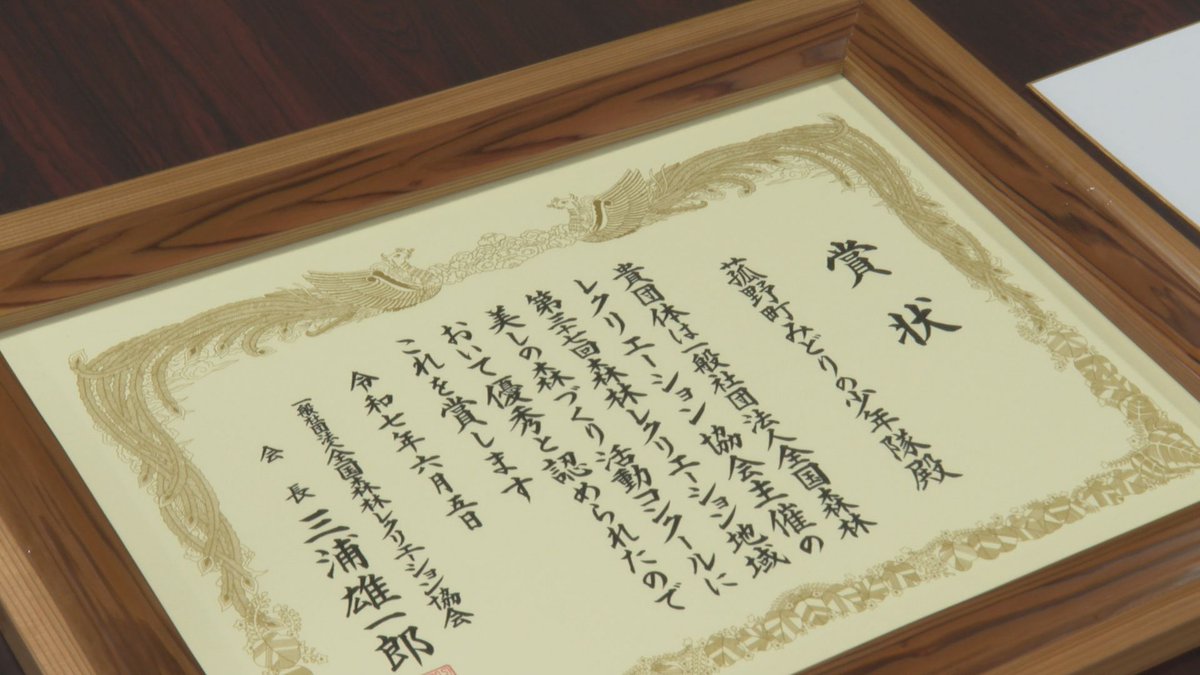 賞状
菰野町みどりの少年隊殿
貴団体は一般社団法人全国森林
レクリエーション協会主催の
第三十七回森林レクリエーション地域
美しの森づくり活動コンクールに
おいて優秀と認められたので
これを賞します
令和七年六月五日
一般社団法人全国森林レクリエーション協会
会長 三浦雄一郎